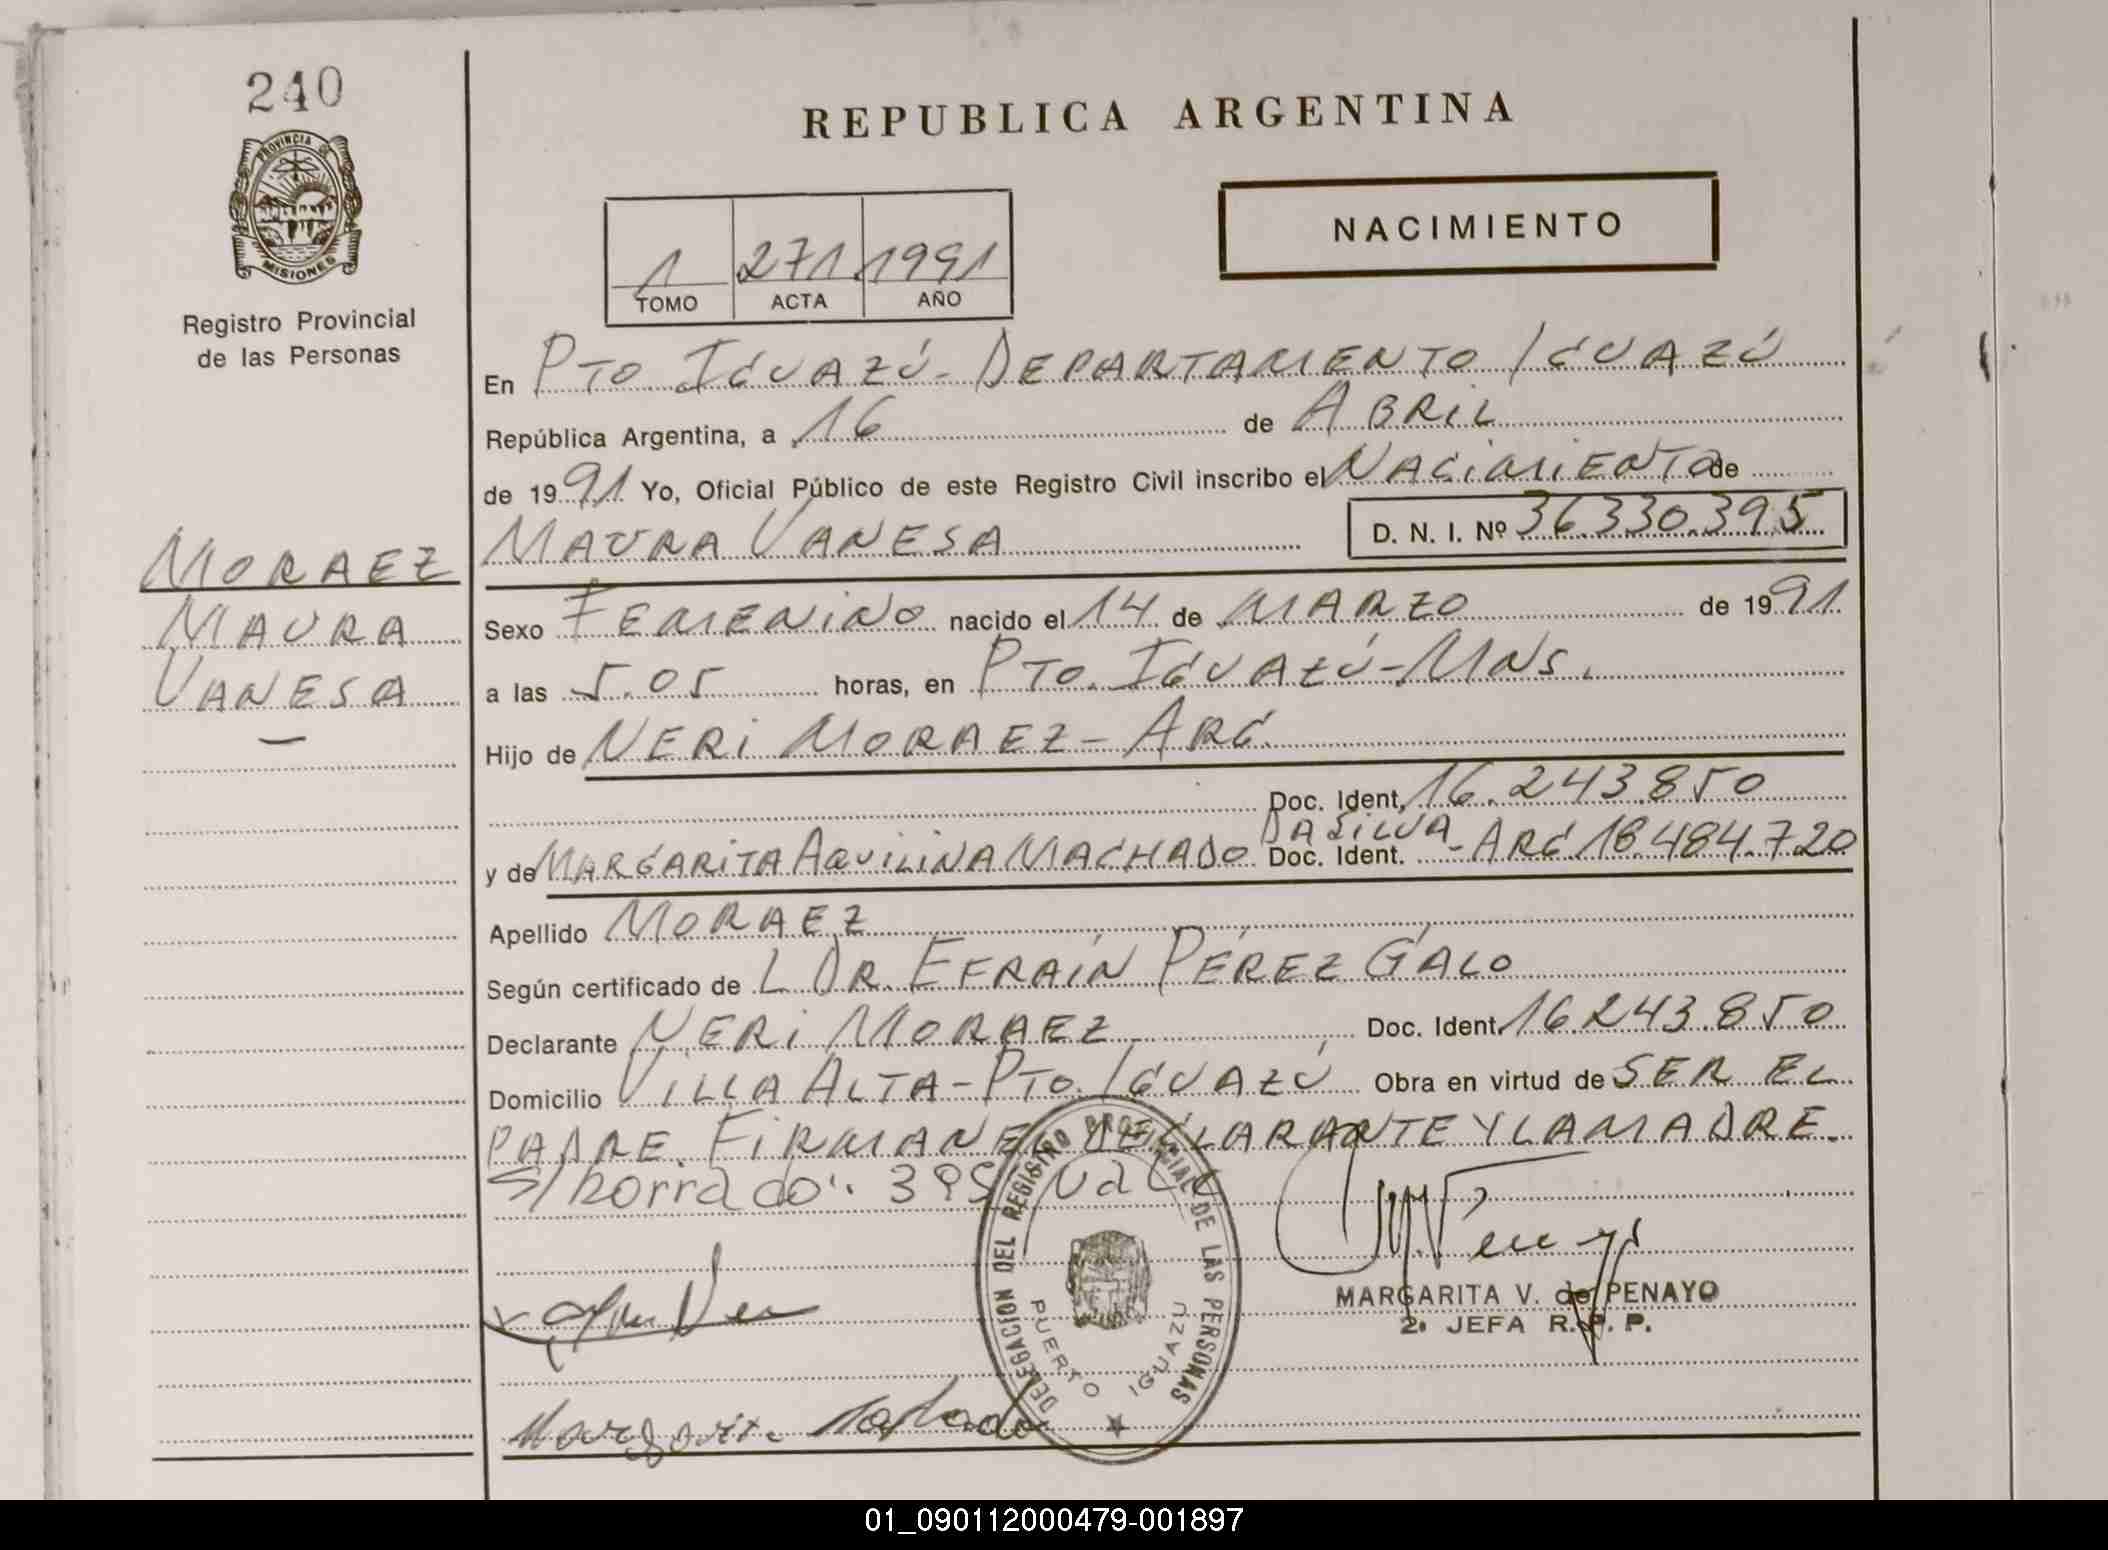 240
PROVINCIA DE
MISIONES
Registro Provincial
de las Personas
MORAEZ
MAURA
VANESA
REPUBLICA ARGENTINA
NACIMIENTO
1 271 1991
TOMO ACTA AÑO
En PTO. IGUAZÚ - DEPARTAMENTO IGUAZÚ
República Argentina, a 16 de ABRIL
de 1991 Yo, Oficial Público de este Registro Civil inscribo el NACIMIENTO de
MAURA VANESA D. N. I. Nº 36.330.395
Sexo FEMENINO nacido el 14 de MARZO de 1991
a las 5.05 horas, en PTO. IGUAZÚ - MNS.
Hijo de NERI MORAEZ - ARG.
Doc. Ident. 16.243.850
DA SILVA
y de MARGARITA AQUILINA MACHADO Doc. Ident. - ARG 18.484.720
Apellido MORAEZ
Según certificado de L DR. EFRAÍN PÉREZ GALO
Declarante NERI MORAEZ Doc. Ident. 16.243.850
Domicilio VILLA ALTA - PTO. IGUAZÚ Obra en virtud de SER EL
PADRE. FIRMAN EL DECLARANTE Y LA MADRE.
S/borrado: 395 Vale
DELEGACION DEL REGISTRO PROVINCIAL DE LAS PERSONAS
PUERTO IGUAZU
MARGARITA V. de PENAYO
2ª JEFA R. P. P.
Margarita Machado
01_090112000479-001897